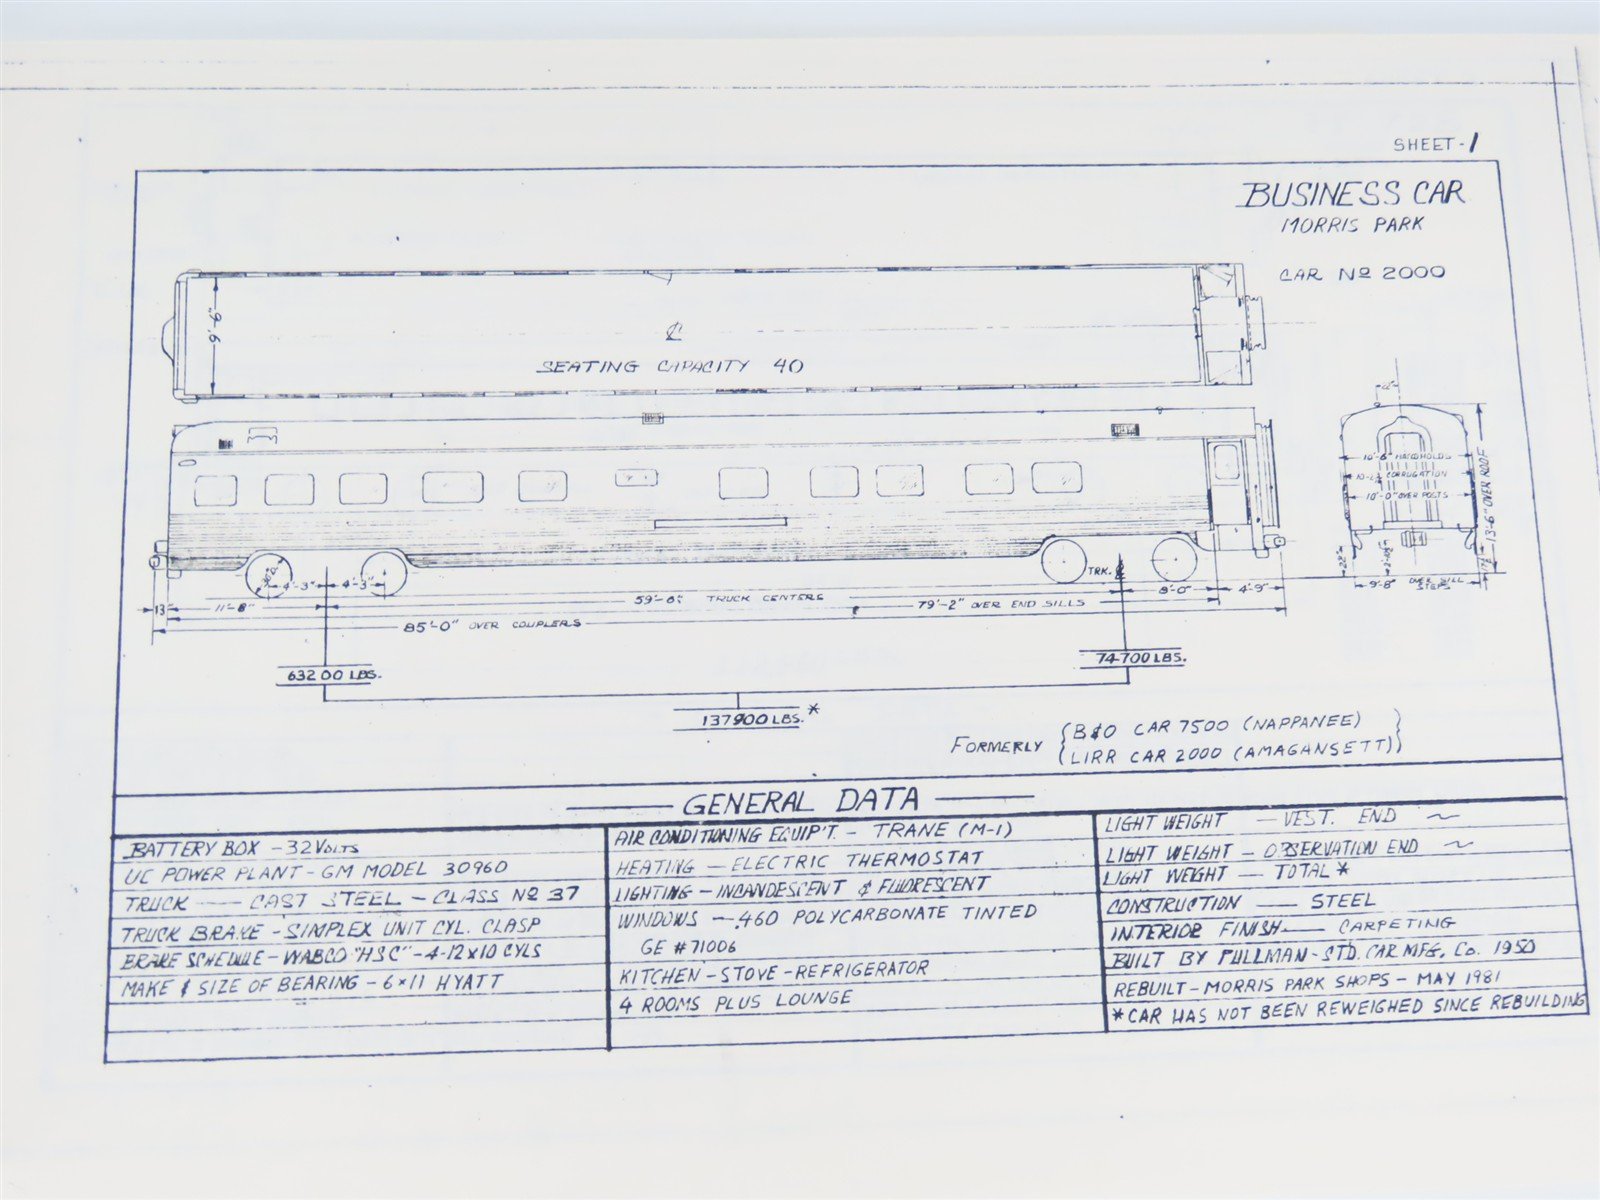 SHEET-1
BUSINESS CAR
MORRIS PARK
CAR No 2000
9'-6"
℄
SEATING CAPACITY 40
22"
10'-6" HANDHOLDS
CORRUGATION
10'-0" OVER POSTS
13'-6" OVER ROOF
4'-3" 4'-3"
TRK. ℄
13" 11'-8" 59'-6" TRUCK CENTERS 8'-0" 4'-9"
79'-2" OVER END SILLS
85'-0" OVER COUPLERS
9'-8" OVER SILL STEPS
63200 LBS.
74700 LBS.
137900 LBS. *
FORMERLY {B&O CAR 7500 (NAPPANEE)}
{LIRR CAR 2000 (AMAGANSETT)}
GENERAL DATA
BATTERY BOX - 32 VOLTS
UC POWER PLANT - GM MODEL 30960
TRUCK — CAST STEEL - CLASS No 37
TRUCK BRAKE - SIMPLEX UNIT CYL. CLASP
BRAKE SCHEDULE - WABCO "HSC" - 4-12x10 CYLS
MAKE & SIZE OF BEARING - 6x11 HYATT
AIR CONDITIONING EQUIP'T. - TRANE (M-1)
HEATING - ELECTRIC THERMOSTAT
LIGHTING - INCANDESCENT & FLUORESCENT
WINDOWS - .460 POLYCARBONATE TINTED
GE #71006
KITCHEN - STOVE - REFRIGERATOR
4 ROOMS PLUS LOUNGE
LIGHT WEIGHT - VEST. END ~
LIGHT WEIGHT - OBSERVATION END ~
LIGHT WEIGHT - TOTAL *
CONSTRUCTION — STEEL
INTERIOR FINISH — CARPETING
BUILT BY PULLMAN-STD. CAR MFG. Co. 1950
REBUILT - MORRIS PARK SHOPS - MAY 1981
*CAR HAS NOT BEEN REWEIGHED SINCE REBUILDING